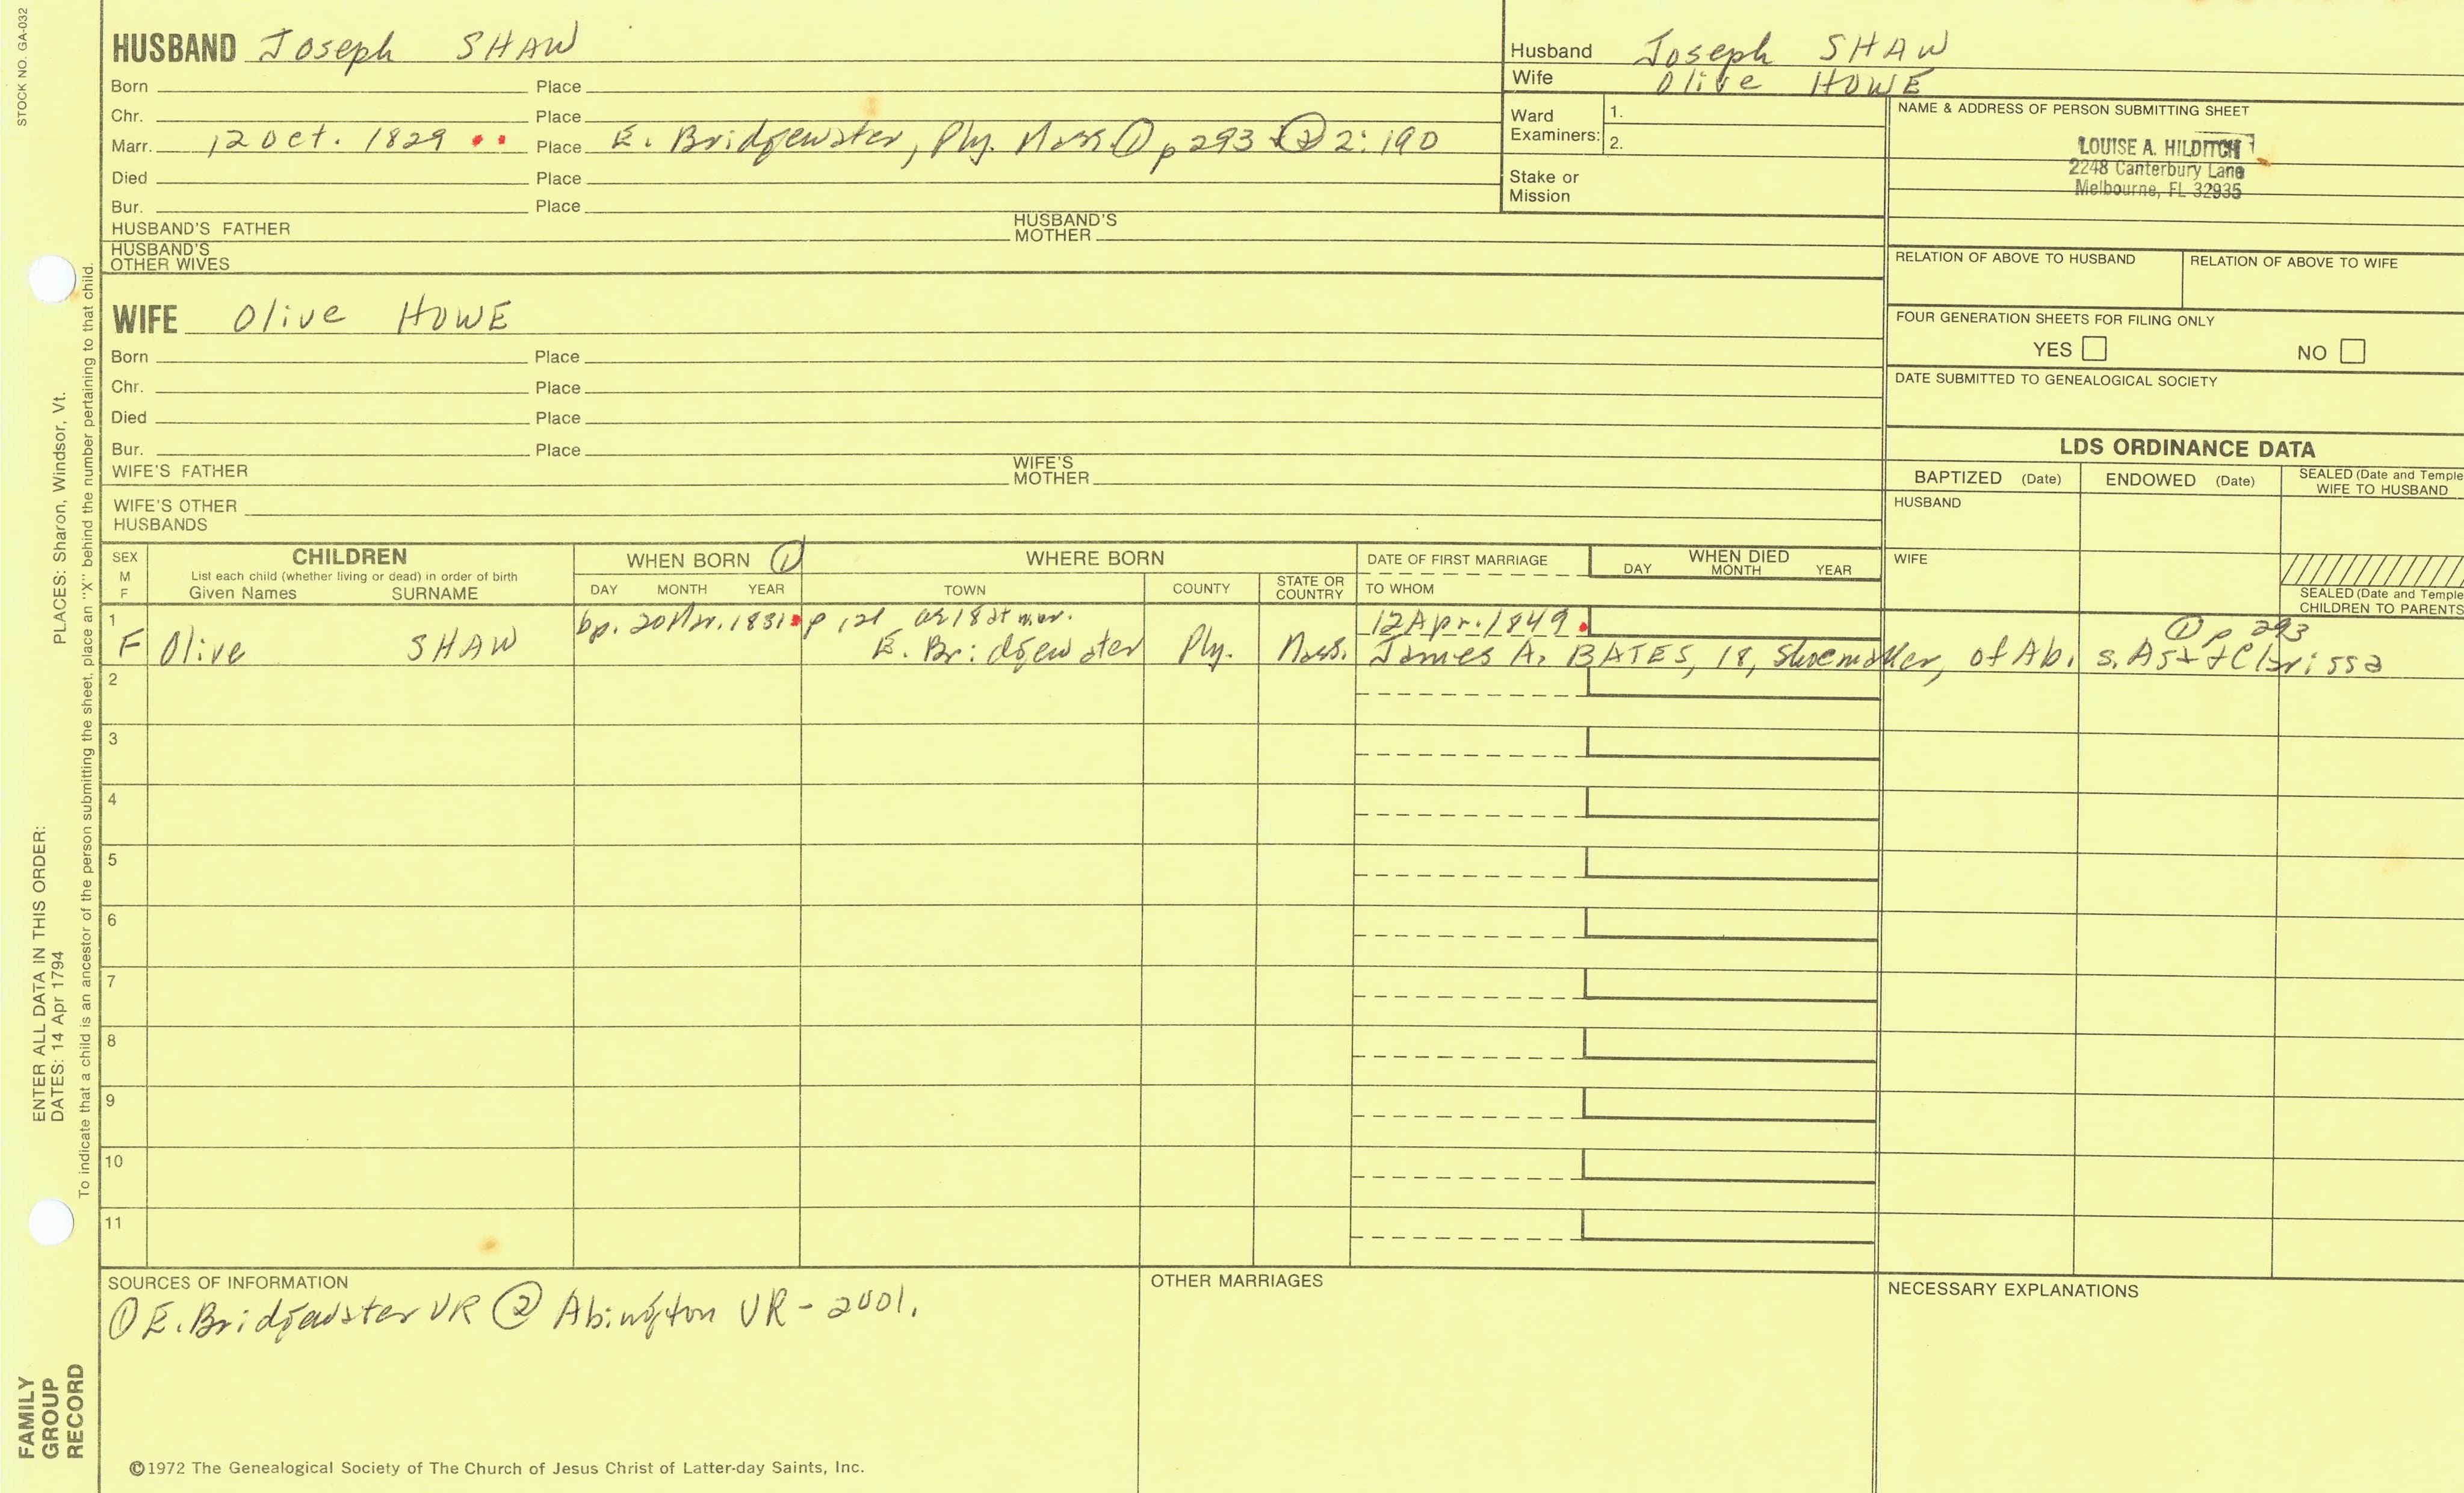 STOCK NO. GA-032
HUSBAND Joseph SHAW
Born Place
Chr. Place
Marr. 12 Oct. 1829 Place E. Bridgewater, Ply. Mass. ① p 293 + ② 2:190
Died Place
Bur. Place
HUSBAND'S FATHER HUSBAND'S MOTHER
HUSBAND'S
OTHER WIVES
Husband Joseph SHAW
Wife Olive HOWE
Ward
Examiners:
1.
2.
Stake or
Mission
NAME & ADDRESS OF PERSON SUBMITTING SHEET
LOUISE A. HILDITCH
2248 Canterbury Lane
Melbourne, FL 32935
RELATION OF ABOVE TO HUSBAND RELATION OF ABOVE TO WIFE
FOUR GENERATION SHEETS FOR FILING ONLY
YES NO
DATE SUBMITTED TO GENEALOGICAL SOCIETY
WIFE Olive HOWE
Born Place
Chr. Place
Died Place
Bur. Place
WIFE'S FATHER WIFE'S MOTHER
WIFE'S OTHER
HUSBANDS
LDS ORDINANCE DATA
BAPTIZED (Date) ENDOWED (Date) SEALED (Date and Temple
WIFE TO HUSBAND
HUSBAND
WIFE
SEALED (Date and Temple
CHILDREN TO PARENTS
SEX
M
F
CHILDREN
List each child (whether living or dead) in order of birth
Given Names SURNAME
WHEN BORN ①
DAY MONTH YEAR
WHERE BORN
TOWN COUNTY STATE OR COUNTRY
DATE OF FIRST MARRIAGE
TO WHOM
WHEN DIED
DAY MONTH YEAR
1 bp. 20 1831 p 121 18 at mar. 12 Apr. 1849 ① p 293
F Olive SHAW E. Bridgewater Ply. Mass. James A. BATES, 18, shoemaker, of Ab. s. + Clarissa
2
3
4
5
6
7
8
9
10
11
SOURCES OF INFORMATION
① E. Bridgewater VR ② Abington VR - 2001.
OTHER MARRIAGES
NECESSARY EXPLANATIONS
©1972 The Genealogical Society of The Church of Jesus Christ of Latter-day Saints, Inc.
ENTER ALL DATA IN THIS ORDER:
DATES: 14 Apr 1794 PLACES: Sharon, Windsor, Vt.
To indicate that a child is an ancestor of the person submitting the sheet, place an "X" behind the number pertaining to that child.
FAMILY
GROUP
RECORD